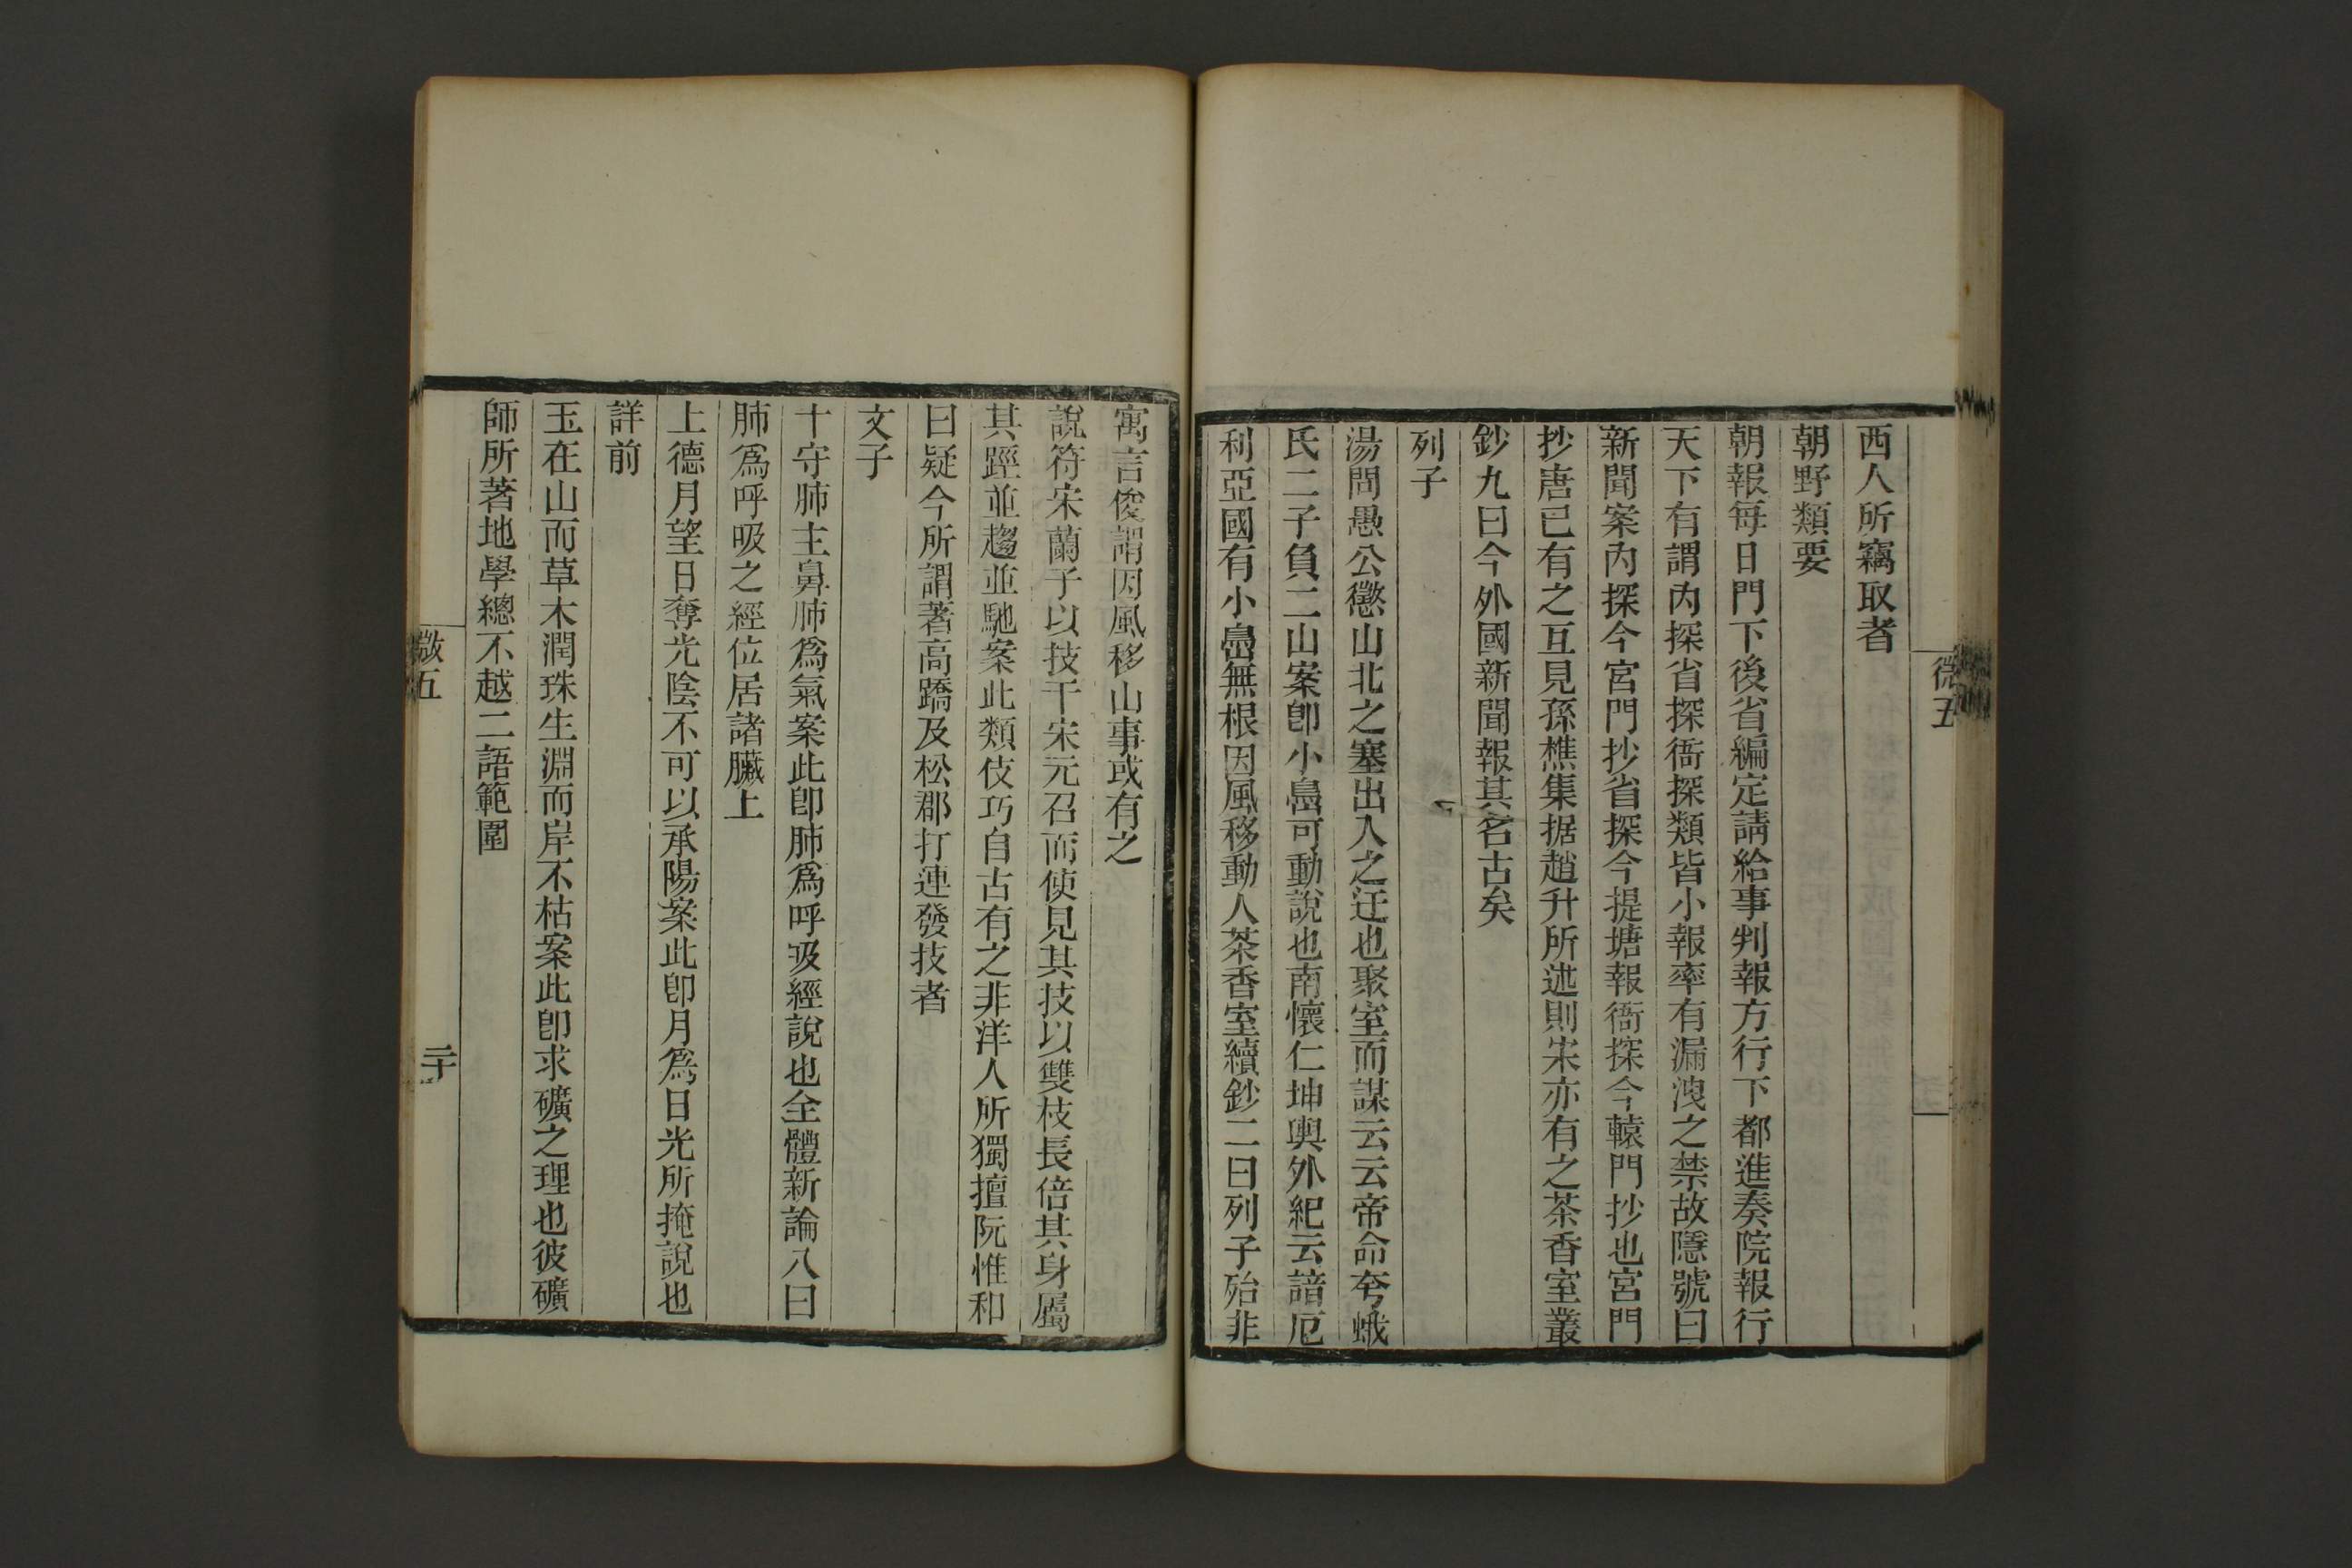 微五
西人所竊取者
朝野類要
朝報每日門下後省編定請給事判報方行下都進奏院報行
天下有謂內探省探衙探類皆小報率有漏洩之禁故隱號曰
新聞案內探今宮門抄省探今提塘報衙探今轅門抄也宮門
抄唐已有之互見孫樵集据趙升所述則宋亦有之茶香室叢
鈔九曰今外國新聞報其名古矣
列子
湯問愚公懲山北之塞出入之迂也聚室而謀云云帝命夸蛾
氏二子負二山案卽小島可動說也南懷仁坤輿外紀云諳厄
利亞國有小島無根因風移動人茶香室續鈔二曰列子殆非
寓言俊謂因風移山事或有之
說符宋蘭子以技干宋元召而使見其技以雙枝長倍其身屬
其踁並趨並馳案此類伎巧自古有之非洋人所獨擅阮惟和
曰疑今所謂著高蹻及松郡打連發技者
文子
十守肺主鼻肺爲氣案此卽肺爲呼吸經說也全體新論八曰
肺爲呼吸之經位居諸臟上
上德月望日奪光陰不可以承陽案此卽月爲日光所掩說也
詳前
玉在山而草木潤珠生淵而岸不枯案此卽求礦之理也彼礦
師所著地學總不越二語範圍
微五
二十